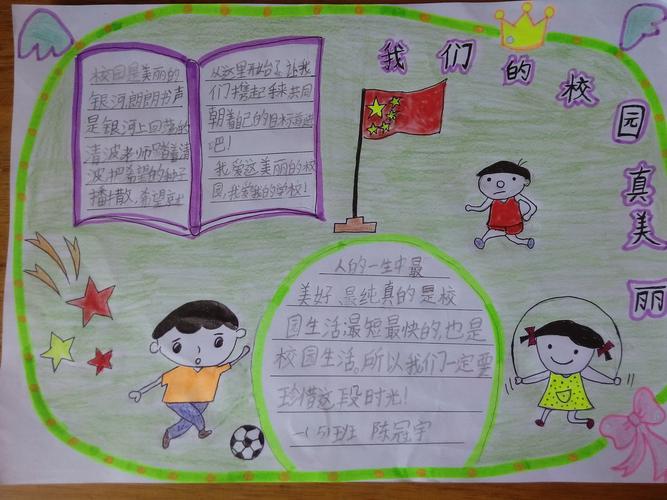 我们的校园真美丽
校园是美丽的
银河朗朗书声
是银河上回荡的
清波老师踏着清
波把希望的种子
播散,希望就
从这里开始了,让我
们携起手来共同
朝着自己的目标奋进
吧!
我爱这美丽的校
园,我爱我的学校!
人的一生中最
美好、最纯真的是校
园生活,最短最快的,也是
校园生活。所以我们一定要
珍惜这段时光!
一(5)班 陈冠宇